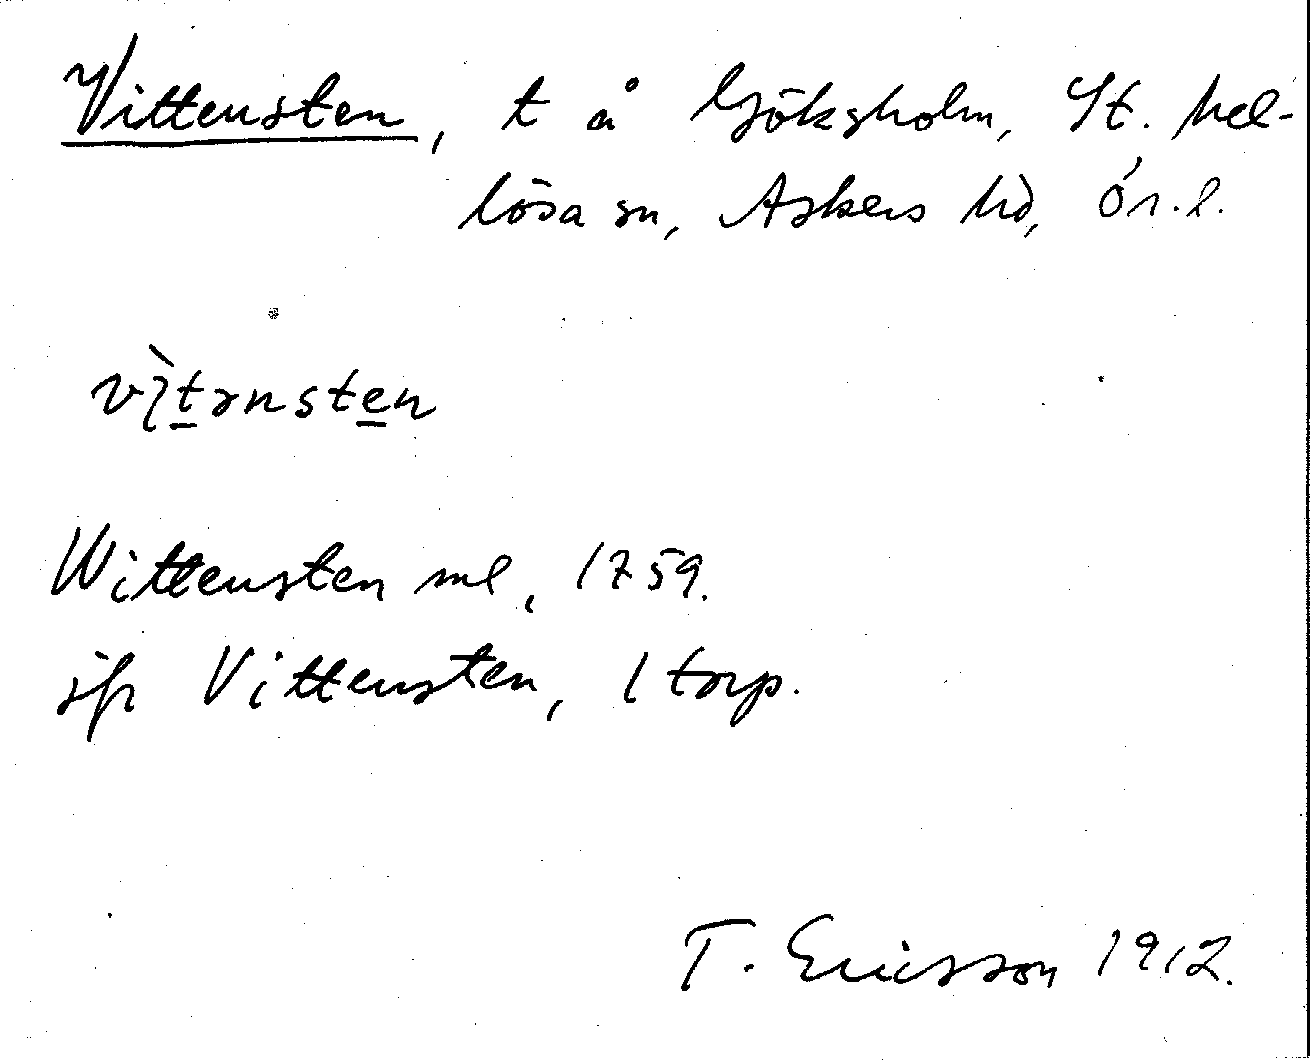 Vittensten, t å Göksholm, St. Mel-
lösa sn, Askers hd, Ör. l.
vìtənsten
Wittensten ml, 1759.
ifr Vittensten, 1 torp.
T. Ericsson 1912.